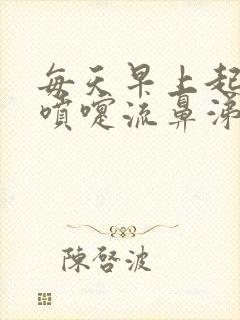 每天早上起
噴嚏流鼻涕
陳啓波